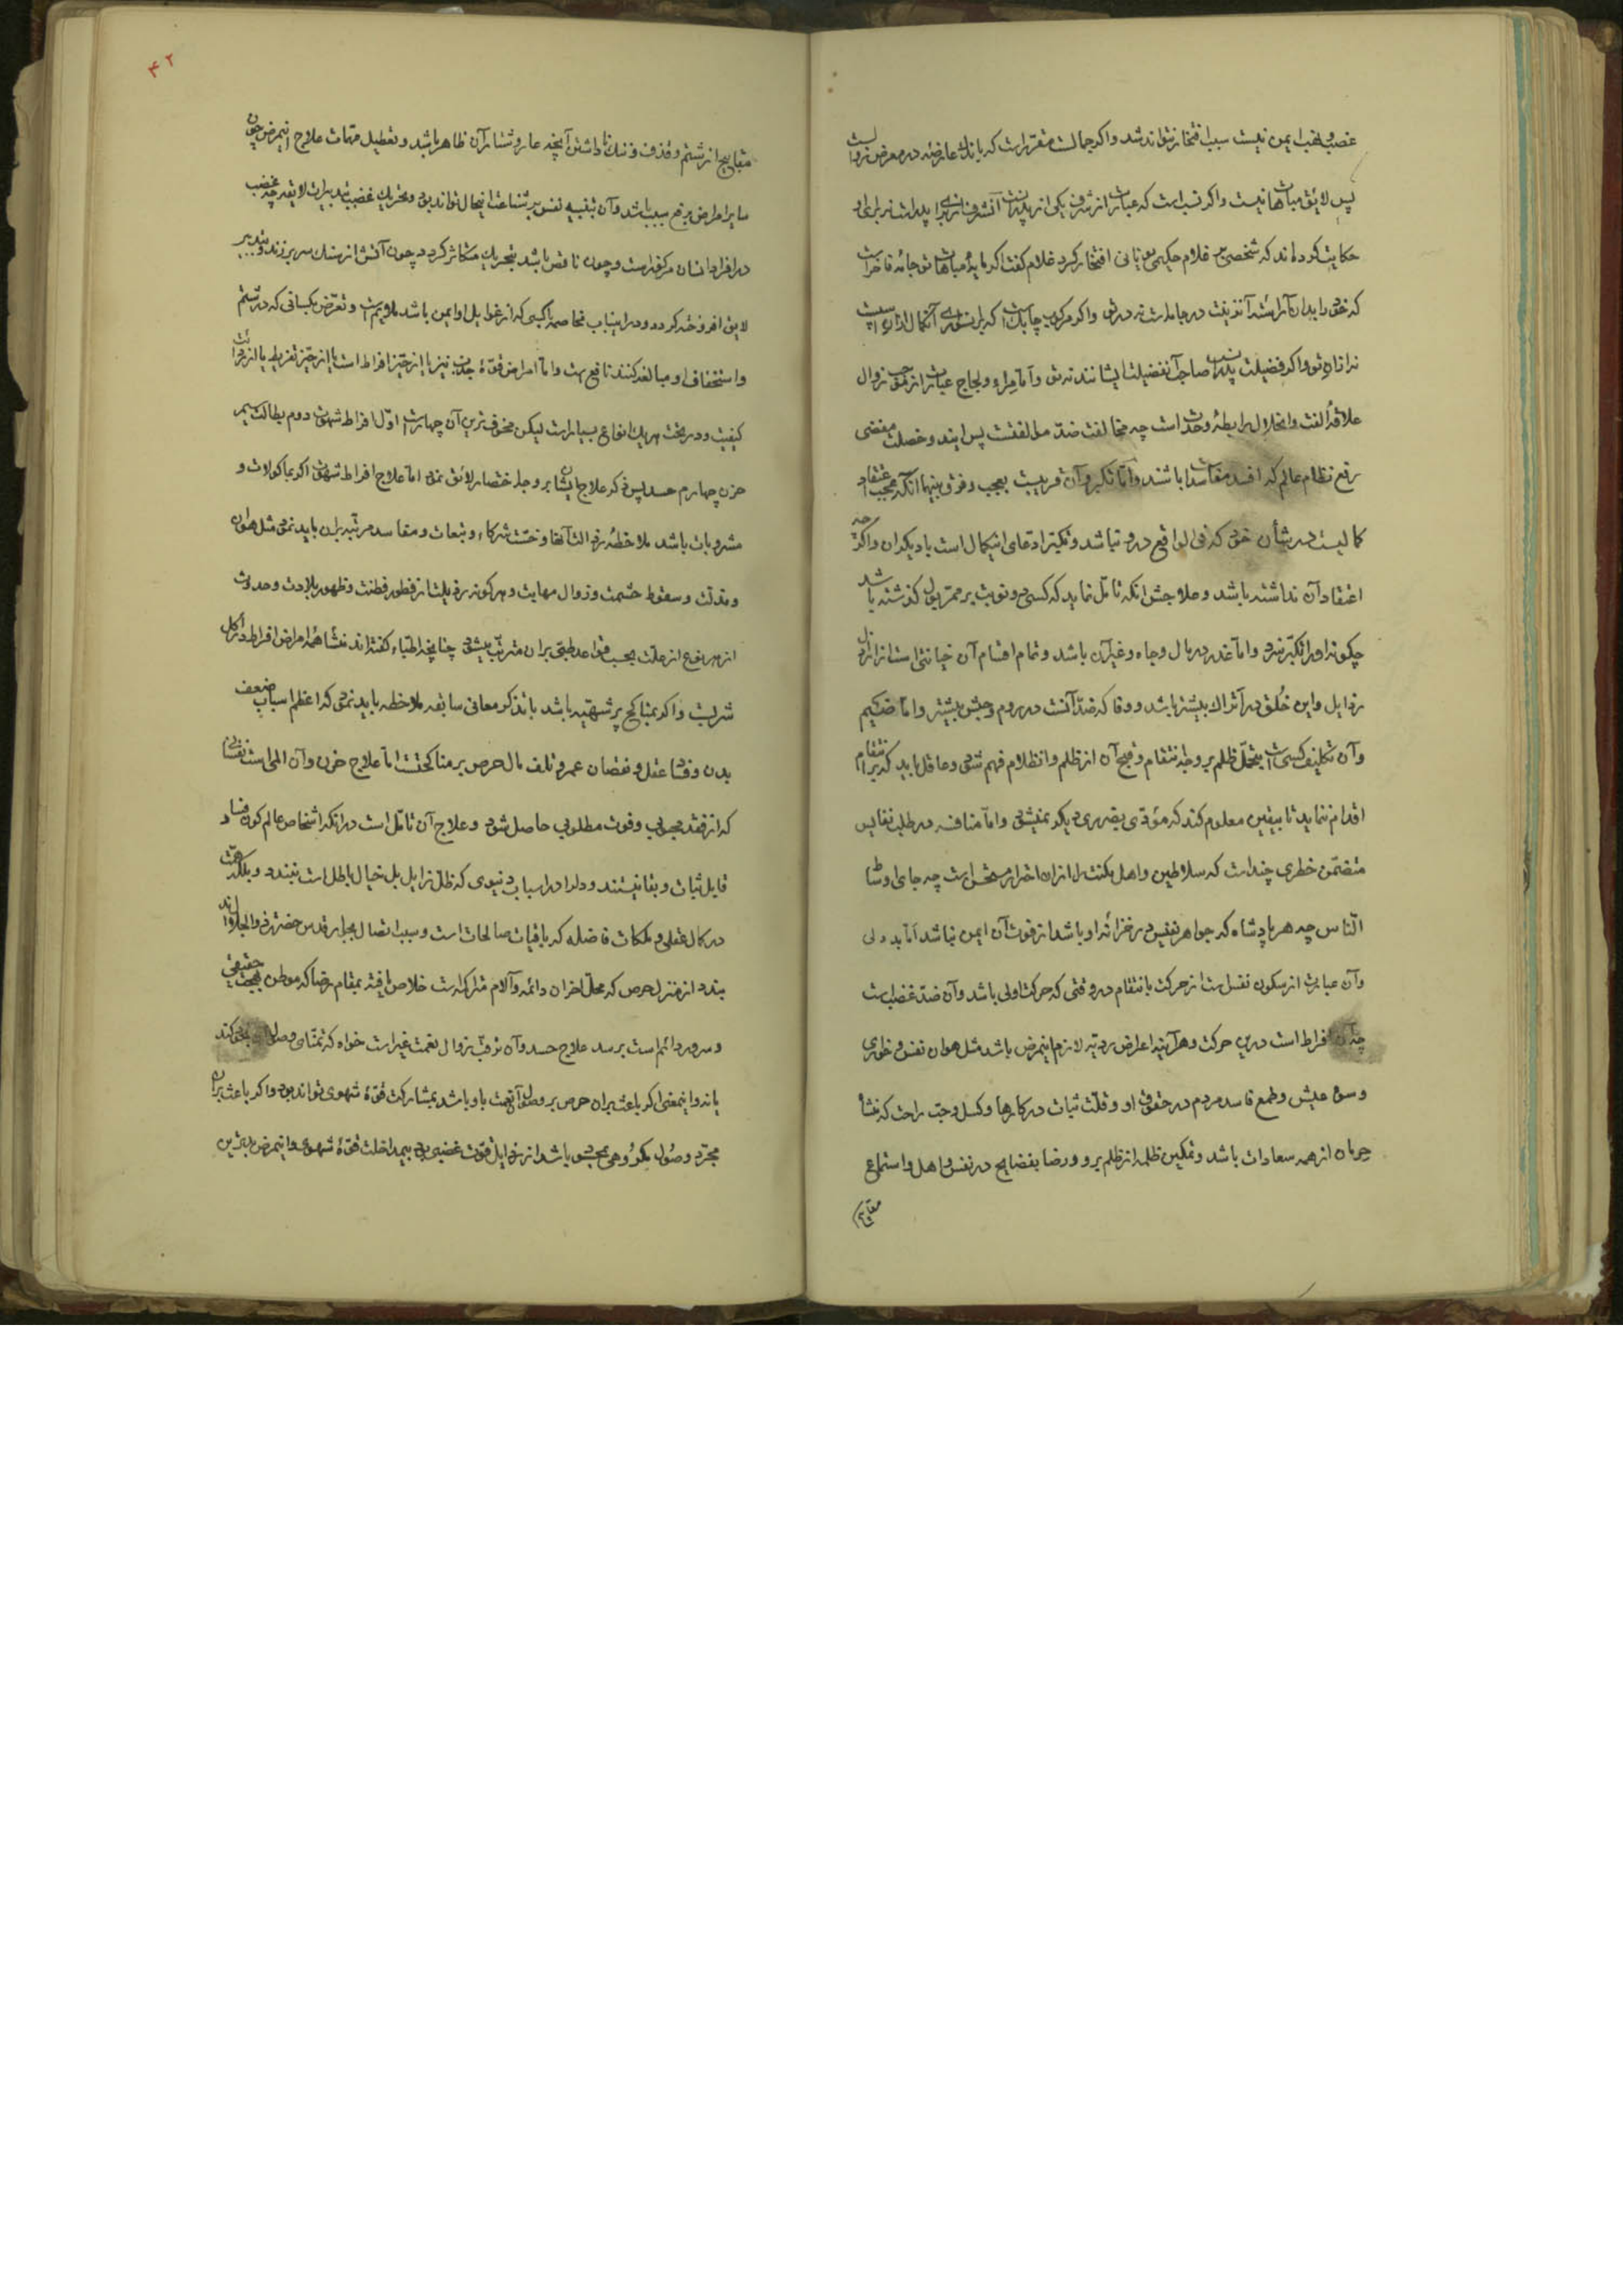 غصب و نهب ایمن نیست سبب افتخار نتواند شد و اگر جمالست مقرر است که باندک عارضهٔ در معرض زوالست
پس لایق مباهات نیست و اگر نسب است که عبارت از شرف یکی از پدرانست آنشرف او را پدراست نه برای او
حکایت کرده‌اند که شخصی بر غلام حکیمی یونانی افتخار کرد غلام گفت اگر مایهٔ مباهات تو جامهٔ فاخر است
که خود را بدان آراستهٔ آن زینت در جامه است نه در تو و اگر مرکوب چابکست که بران سواری آن کمال اورا است
نه از آن تو و اگر فضیلت پدرانست صاحب آن فضیلت ایشانند نه تو و اما مراء و لجاج عبارت از موجب زوال
علاقهٔ الفت و انحلال رابطهٔ وحدت است چه مخالفت ضد موالفتست پس ایند و خصلت مفضی
رفع نظام عالم که افسد مفاسد است باشند و اما تکبر و آن قریبست بعجب و فرق بینهما آنکه عجب اعتقاد
کمالیست در شأن خود که فی الواقع در و نباشد و تکبر ادعای آن کمال است با دیگران و اگرچه
اعتقاد آن نداشته باشد و علاجش آنکه تأمل نماید که کسی دو نوبت بر ممر بول گذشته باشد
چگونه او را تکبر سزد و اما غدر در مال و جاه و غیر آن باشد و تمام اقسام آن خیانتی است از ارذل
رذایل و این خلق در اتراک بیشتر باشد و وفا که ضد آنست در روم و حبش بیشتر و اما ضیم
و آن تکلیف کسی است بتحمل ظلم بر وجه انتقام و قبح آن از ظلم و انظلام فهم شود و عاقل باید که بر انتقام
اقدام ننماید تا بیقین معلوم کند که مؤدی بضرری دیگر نمیشود و اما منافسه در طلب نفایس
متضمن خطری چند است که سلاطین و اهل مکنت را از ان احتراز مستحسن است چه جای اوساط
الناس چه هر پادشاه که جواهر نفیس در خزانهٔ او باشد از فوت آن ایمن نباشد اما بددلی
و آن عبارت از سکون نفس است از حرکت بانتقام در وقتی که حرکت اولی باشد و آن ضد غضب است
چه آن افراط است درین حرکت و هر آینه اعراض ردیه لازم اینمرض باشد مثل هوان نفس و خواری
و سوء عیش و طمع فاسد مردم در حقوق او و قلت ثبات در کارها و کسل و حب راحت که منشأ
حرمان از همه سعادات باشد و تمکین ظلمه از ظلم بر و و رضا بفضایح در نفس و اهل و استماع
مقابح
۴۲
مقابح از شتم و قذف و ننگ ناداشتن آنچه عار و شنار آن ظاهر باشد و تعطیل مهمات علاج اینمرض چون
سایر امراض برفع سبب باشد و آن تنبیه نفس بر شناعت اینحال تواند بود و تحریک غضب بتدبیرات لایقه چه غضب
در افراد انسان مرکوز است و چون ناقص باشد بتحریک متکاثر گردد چون آتش از سنگ سر بر زند و بتدبیر
لایق افروخته گردد و در اینباب مخاصمه با کسی که از غوایل او ایمن باشد ملایم است و تعرض بکسانی که در شتم
و استخفاف او مبالغه کنند نافع است و اما امراض قوهٔ جذب نیز یا از حیز افراط است یا از حیز تفریط یا از ردائت
کیفیت و در تحت هر یک انواع بسیار است لیکن مخوف‌ترین آن چهار است اول افراط شهوت دوم بطالت سیم
حزن چهارم حسد پس ذکر علاج ایشان بر وجه اختصار لائق نمود اما علاج افراط شهوت اگر بماکولات و
مشروبات باشد ملاحظهٔ رذالت آنها و خست شرکاء و تبعات و مفاسد مرتبه بران باید نمود مثل هوان
و مذلت و سقوط حشمت و زوال مهابت و هرگونه رذیلت از فطور فطنت و ظهور بلادت و حدوث
از هر نوع از علت بحسب قواعد طبی بران مترتب میشود چنانچه اطباء گفته‌اند منشأ همه امراض افراط در اکل
شربست و اگر بمناکح پر شهتیه باشد با تذکر معانی سابقه ملاحظه باید نمود که اعظم اسباب ضعف
بدن و فساد عقل و نقصان عمر و تلف مال حرص بر مناکحتست اما علاج حزن و آن المی است نفسانی
که از فقد محبوبی و فوت مطلوبی حاصل شود و علاج آن تأمل است در آنکه اشخاص عالم کون و فساد
قابل ثبات و بقا نیستند و دل در اسباب دنیوی که ظل زایل بل خیال باطل است نبندد و بلکه همت
در کمال عقلی و ملکات فاضله که باقیات صالحات است و سبب اتصال بجوار قدس حضرت ذوالجلال اند
بندد از منزل حرص که محل احزان دائمه و آلام متراکمه است خلاص یافته بمقام رضا که موطن بهجت حقیقی
و سرور دائم است برسد علاج حسد و آن ترقب زوال نعمت غیر است خواه که تمنای وصول بخود کند
یا نه و اینمعنی اگر باعث بران حرص بر وصول آنعمت باو باشد بمشارکت قوهٔ شهوی تواند بود و اگر باعث بران
مجرد وصول مکروهی بمحسود باشد از رذایل قوت غضبی بود بیمداخلت قوهٔ شهوی و اینمرض بدترین